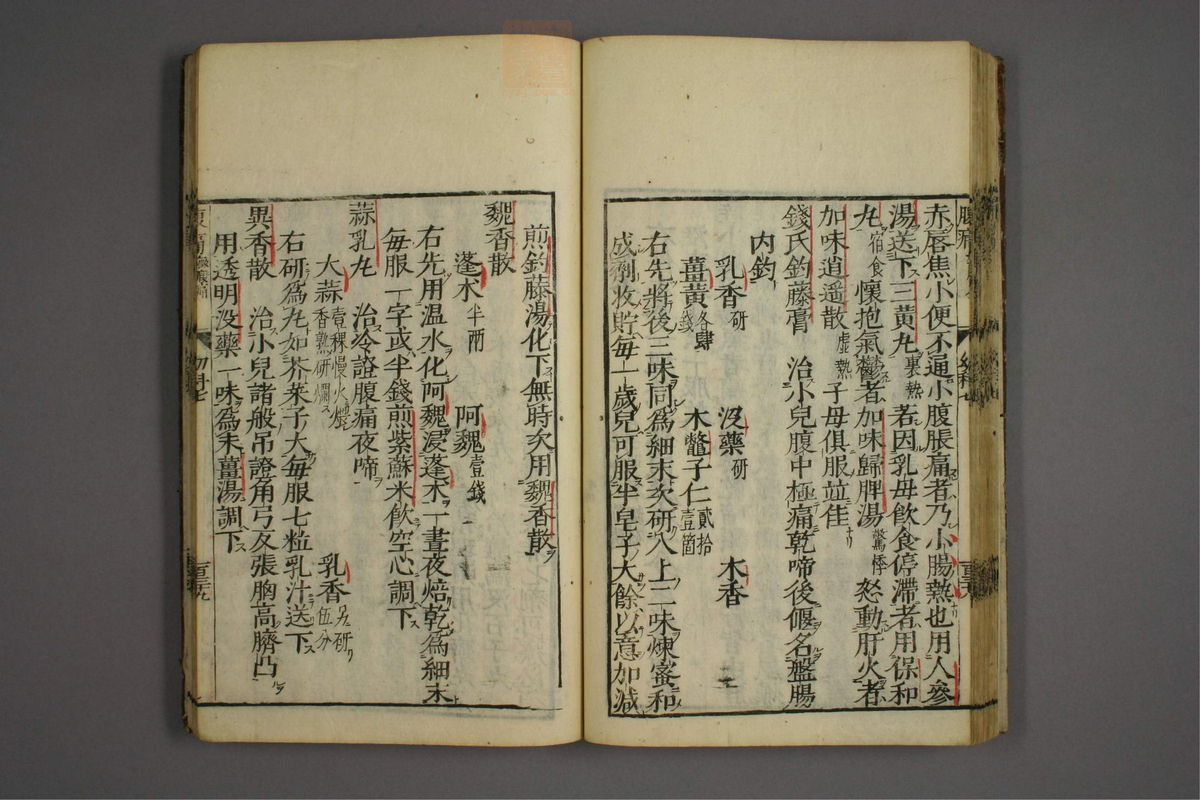 赤唇焦小便不通小腹脹痛者乃小腸熱也用人參
湯送下三黄丸裏熱若因乳母飲食停滯者用保和
丸宿食懷抱氣鬱者加味歸脾湯驚悸怒動肝火者
加味逍遥散虚熱子母俱服並佳
錢氏釣藤膏 治小兒腹中極痛乾啼後偃名盤腸
内釣
乳香研 没藥研 木香
薑黄各肆錢 木鼈子仁貳拾壹箇
右先將後三味同爲細末次研入上二味煉蜜和
成劑收貯每一歲兒可服半皂子大餘以意加減
煎釣藤湯化下無時次用魏香散
魏香散
蓬朮半兩 阿魏壹錢
右先用温水化阿魏浸蓬朮一晝夜焙乾爲細末
每服一字或半錢煎紫蘇米飲空心調下
蒜乳丸 治冷證腹痛夜啼
大蒜壹稞慢火煨香熟研爛 乳香另研伍分
右研爲丸如芥菜子大每服七粒乳汁送下
異香散 治小兒諸般吊證角弓反張胸高臍凸
用透明没藥一味爲末薑湯調下